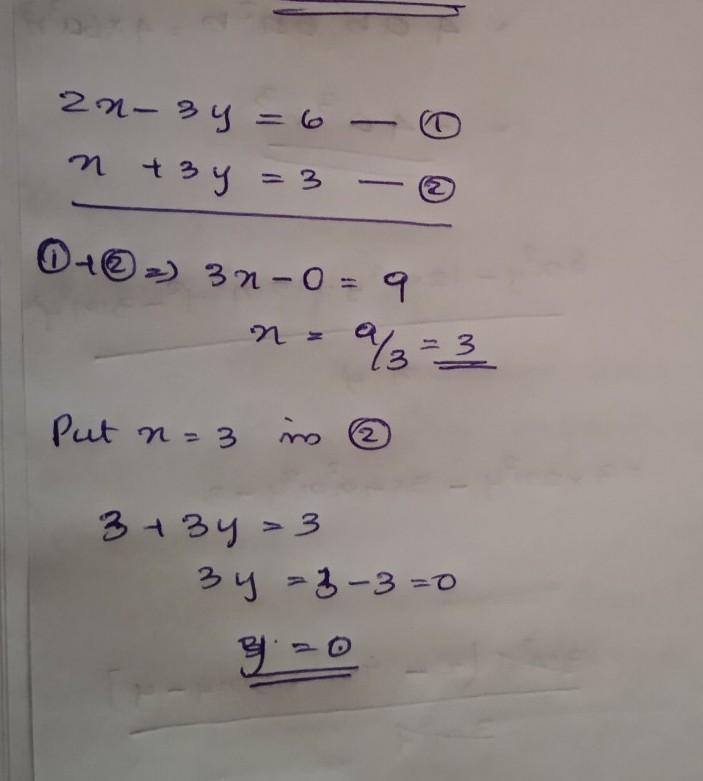 2x - 3y = 6 — ①
x + 3y = 3 — ②
① + ② ⇒ 3x - 0 = 9
x = 9/3 = 3
Put x = 3 in ②
3 + 3y = 3
3y = 3 - 3 = 0
y = 0